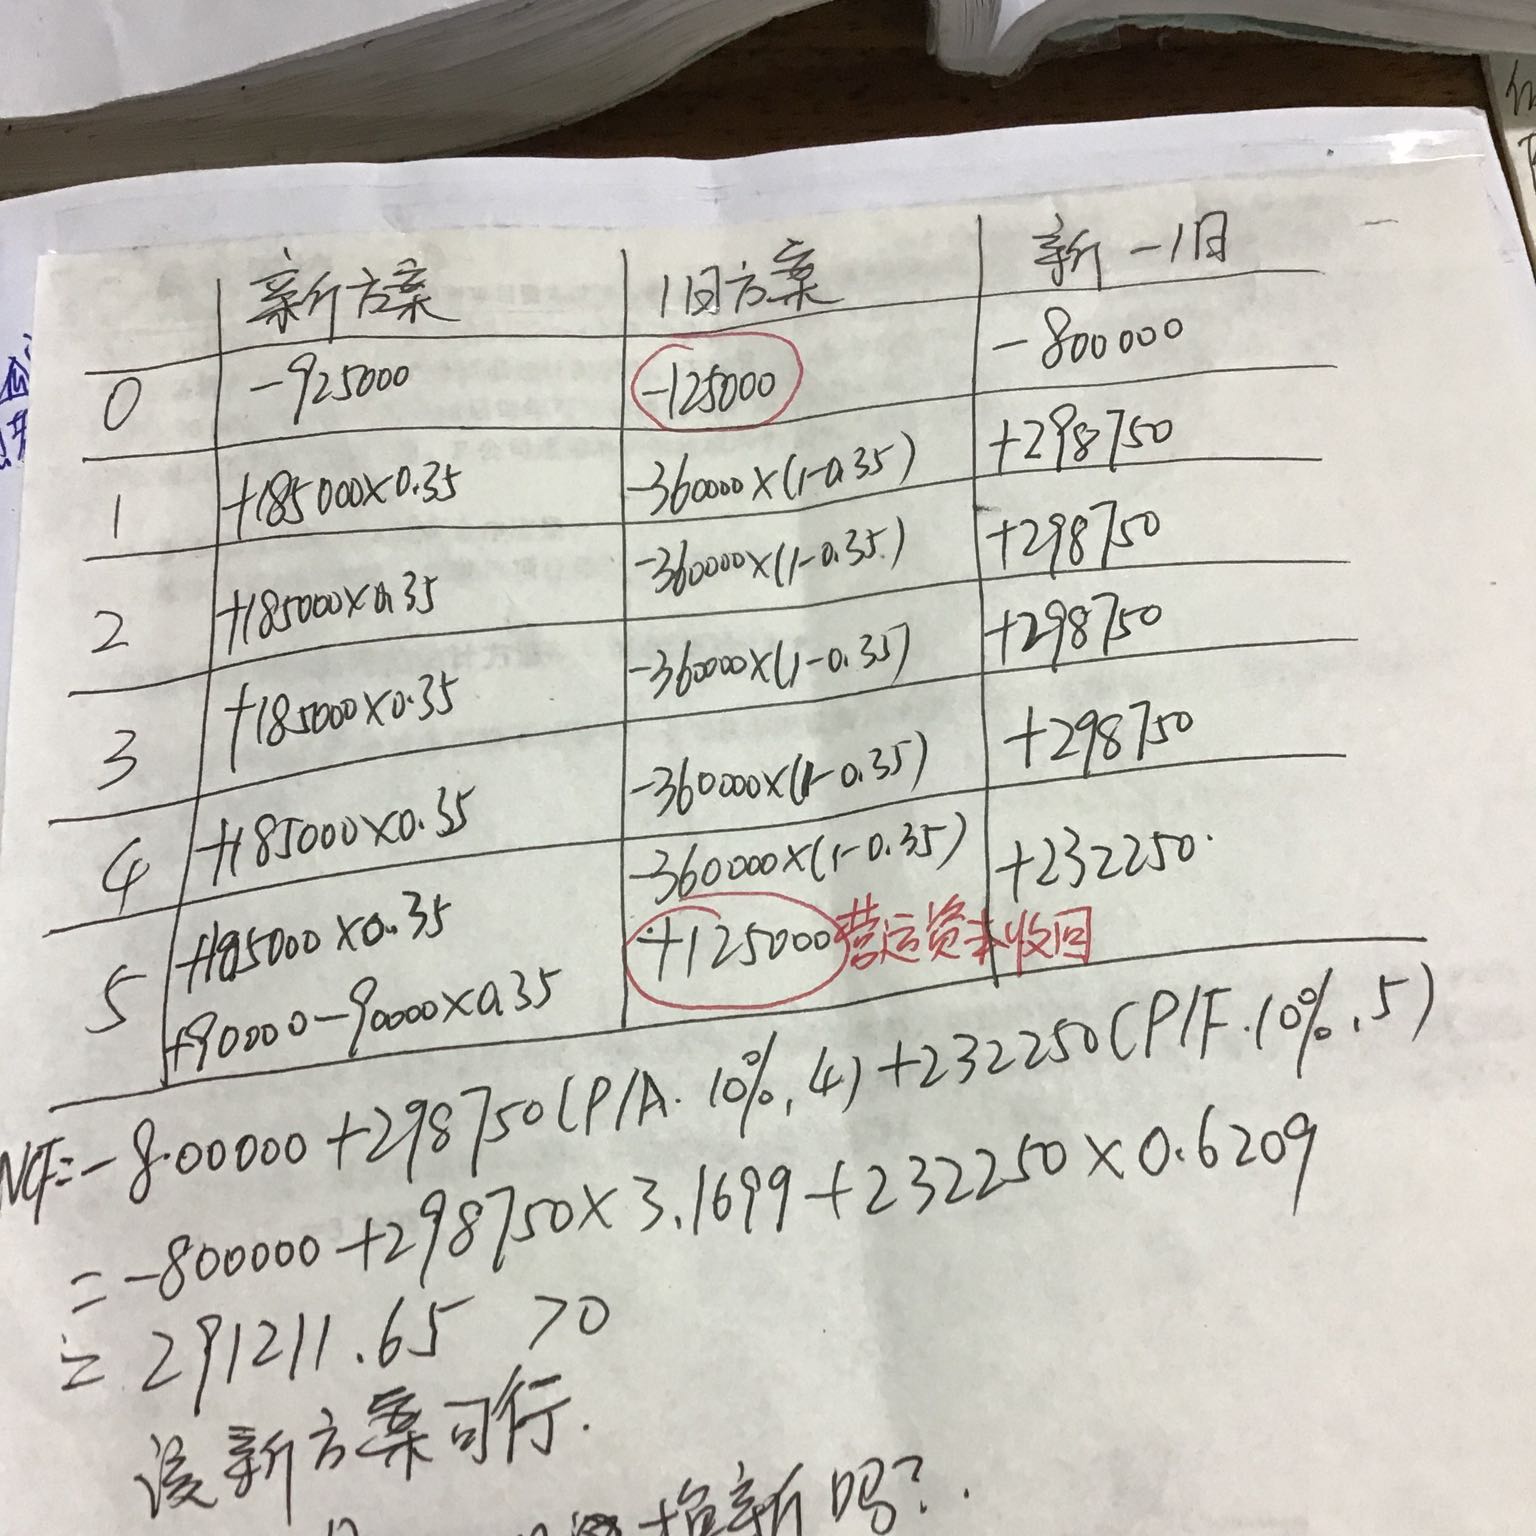 新方案 旧方案 新-旧
0 -925000 -125000 -800000
1 +185000×0.35 -360000×(1-0.35) +298750
2 +185000×0.35 -360000×(1-0.35) +298750
3 +185000×0.35 -360000×(1-0.35) +298750
4 +185000×0.35 -360000×(1-0.35) +298750
5 +185000×0.35 -360000×(1-0.35) +232250.
+90000-90000×0.35 +125000 营运资本收回
NCF=-800000+298750(P/A.10%,4)+232250(P/F.10%,5)
=-800000+298750×3.1699+232250×0.6209
=291211.65 >0
该新方案可行.
换新吗?.